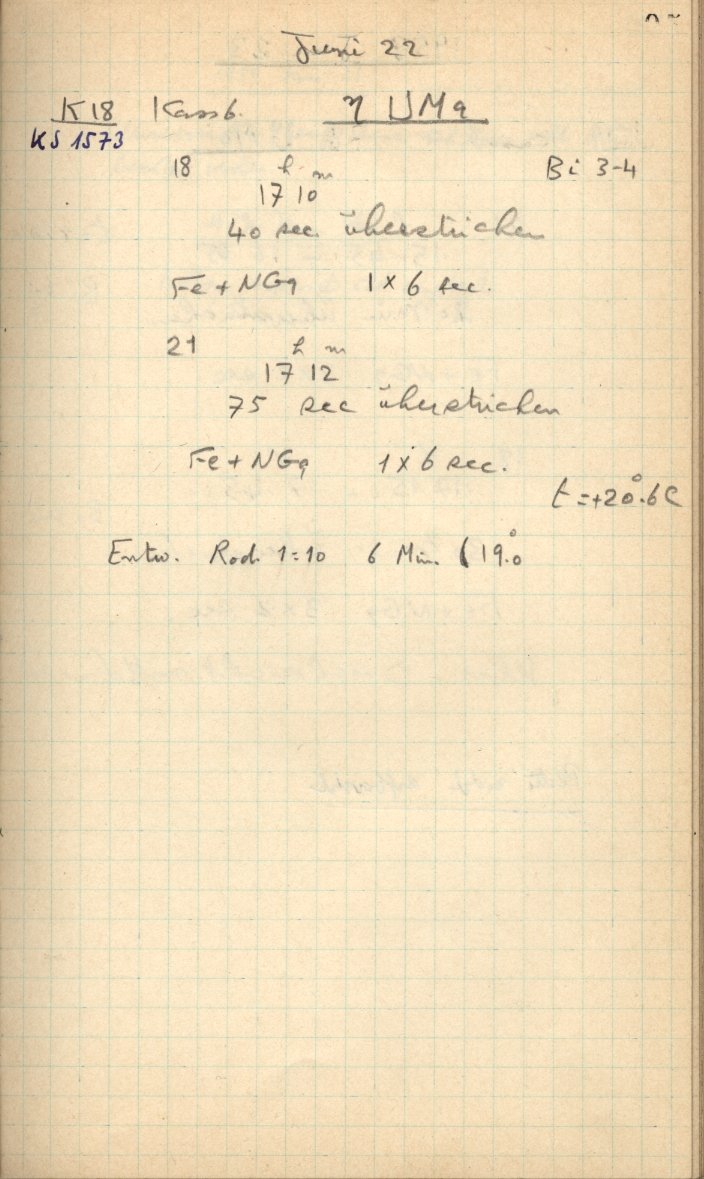 Juni 22
K18 Kass 6. η UMa
KS 1573
18 h m Bi 3-4
17 10
40 sec. überstrichen
Fe + NGa 1 x 6 sec.
21 h m
17 12
75 sec überstrichen
Fe + NGa 1 x 6 sec.
t = +20°.6 C
Entw. Rod. 1:10 6 Min. (19°.0